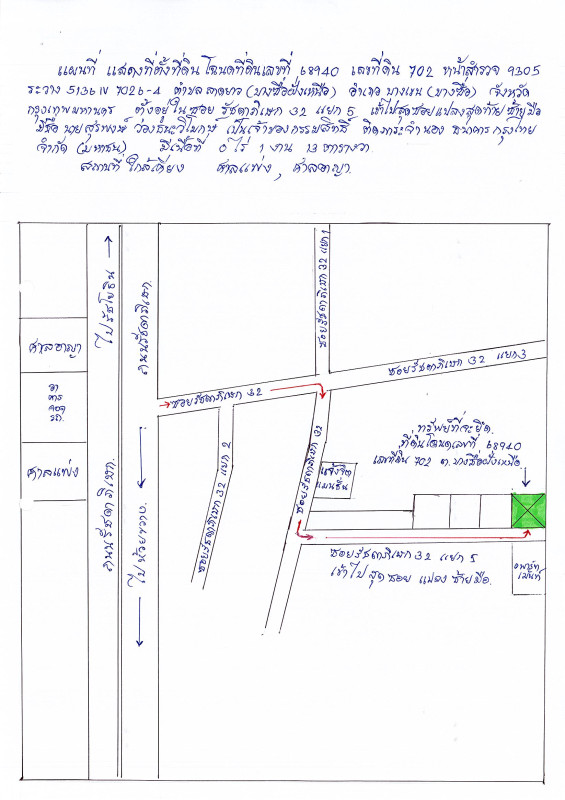 แผนที่ แสดงที่ตั้งที่ดิน โฉนดที่ดินเลขที่ ๖8940 เลขที่ดิน 702 หน้าสำรวจ 9305
ระวาง 5136 IV 7026-4 ตำบล ลาดยาว (บางซื่อฝั่งเหนือ) อำเภอ บางเขน (บางซื่อ) จังหวัด
กรุงเทพมหานคร ตั้งอยู่ใน ซอย รัชดาภิเษก 32 แยก 5 เข้าไปสุดซอยแปลงสุดท้าย ซ้ายมือ
มีชื่อ นาย เป็นเจ้าของกรรมสิทธิ์ ติดภาระจำนอง ธนาคาร กรุงไทย
จำกัด (มหาชน) มีเนื้อที่ 0 ไร่ 1 งาน 13 ตารางวา
สถานที่ ใกล้เคียง ศาลแพ่ง, ศาลอาญา.
ไปรัชโยธิน
ถนนรัชดาภิเษก
ซอยรัชดาภิเษก 32 แยก 1
ศาลอาญา
ซอยรัชดาภิเษก 32 แยก 3
อาคาร
ซอยรัชดาภิเษก 32
ซอยรัชดาภิเษก 32
ซอยรัชดาภิเษก 32 แยก 2
ทรัพย์ที่จะยึด.
ที่ดินโฉนดเลขที่ ๖8940
เลขที่ดิน 702 ต. บางซื่อฝั่งเหนือ
ศาลแพ่ง
แมนชั่น
ถนนรัชดาภิเษก.
ไปห้วยขวาง.
ซอยรัชดาภิเษก 32 แยก 5
เข้าไป สุดซอย แปลง ซ้ายมือ.
อพาร์ทเม้นท์